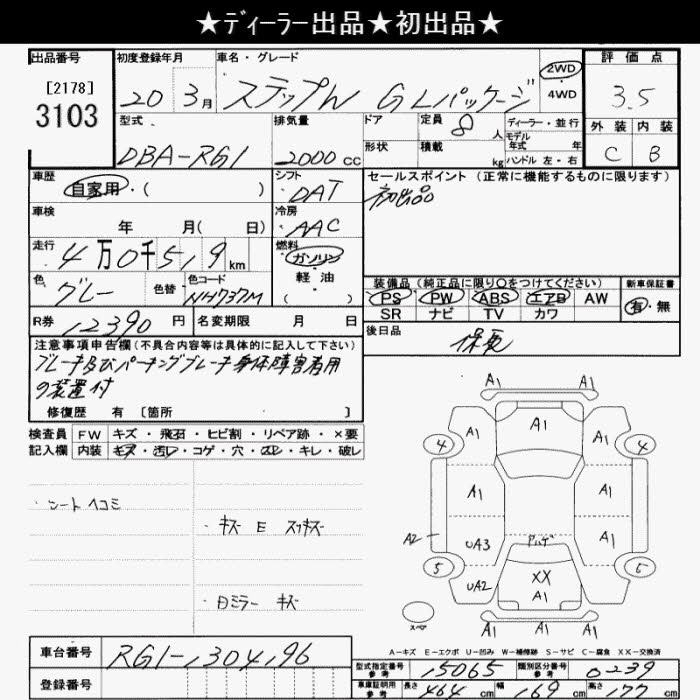 ★ディーラー出品★初出品★
出品番号
[2178]
3103
初度登録年月
20 3月
車名・グレード
ステップW GLパッケージ
2WD
4WD
評価点
3.5
外装 内装
C B
型式
DBA-RG1
排気量
2000 cc
ドア
形状
定員 8 人
積載 kg
ディーラー・並行
モデル年式 年
ハンドル 左・右
車歴
自家用・( )
シフト
DAT
セールスポイント (正常に機能するものに限ります)
初出品
車検
年 月( 日)
冷房
AAC
走行
4万0千519km
燃料
ガソリン
軽油
( )
色
グレー
色替
色コード
NH737M
装備品 (純正品に限り○をつけてください)
PS PW ABS エアB AW
SR ナビ TV カワ
新車保証書
有・無
R券 12390 円
名変期限 月 日
後日品
保、取
注意事項申告欄(不具合内容等は具体的に記入して下さい)
ブレーキ及びパーキングブレーキ身体障害者用
の装置付
修復歴 有 [箇所 ]
検査員
記入欄
FW キズ・飛石・ヒビ割・リペア跡・×要
内装 キズ・汚レ・コゲ・穴・スレ・キレ・破レ
・シート ヘコミ
・キズ E スリキズ
・白ミラー キズ
A1
A1 A1 A1
4 4
A1 A1
A2 UA3 アルゲ A1
5 5
UA2 XX
A1
A1 A1
スペア
A-キズ E-エクボ U-凹み W-補修跡 S-サビ C-腐食 XX-交換済
車台番号 RG1-1304196
登録番号
型式指定番号 参考 15065
類別区分番号 参考 0239
車庫証明用 参考 長さ 464 cm 幅 169 cm 高さ 177 cm